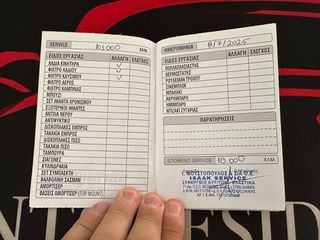 SERVICE 103.000 ΧΛΜ.
ΕΙΔΟΣ ΕΡΓΑΣΙΑΣ ΑΛΛΑΓΗ ΕΛΕΓΧΟΣ
ΛΑΔΙΑ ΚΙΝΗΤΗΡΑ ✓
ΦΙΛΤΡΟ ΛΑΔΙΟΥ ✓
ΦΙΛΤΡΟ ΚΑΥΣΙΜΟΥ ✓
ΦΙΛΤΡΟ ΑΕΡΟΣ
ΦΙΛΤΡΟ ΚΑΜΠΙΝΑΣ
ΜΠΟΥΖΙ
ΣΕΤ ΙΜΑΝΤΑ ΧΡΟΝΙΣΜΟΥ
ΕΞΩΤΕΡΙΚΟΙ ΙΜΑΝΤΕΣ
ΑΝΤΛΙΑ ΝΕΡΟΥ
ΑΝΤΙΨΥΚΤΙΚΟ
ΔΙΣΚΟΠΛΑΚΕΣ ΕΜΠΡΟΣ
ΤΑΚΑΚΙΑ ΕΜΠΡΟΣ
ΔΙΣΚΟΠΛΑΚΕΣ ΠΙΣΩ
ΤΑΚΑΚΙΑ ΠΙΣΩ
ΤΑΜΠΟΥΡΑ
ΣΙΑΓΟΝΕΣ
ΚΥΛΙΝΔΡΑΚΙΑ
ΣΕΤ ΣΥΜΠΛΕΚΤΗ
ΒΑΛΒΟΛΙΝΗ ΣΑΣΜΑΝ
ΑΜΟΡΤΙΣΕΡ
ΒΑΣΕΙΣ ΑΜΟΡΤΙΣΕΡ (TOP MOUNT)
ΗΜΕΡΟΜΗΝΙΑ 8/7/2025
ΕΙΔΟΣ ΕΡΓΑΣΙΑΣ ΑΛΛΑΓΗ ΕΛΕΓΧΟΣ
ΠΟΛΛΑΠΛΑΣΙΑΣΤΗΣ
ΘΕΡΜΟΣΤΑΤΗΣ
ΡΟΥΛΕΜΑΝ ΤΡΟΧΟΥ
ΣΙΝΕΜΠΛΟΚ
ΜΠΑΛΑΚΙ
ΑΚΡΟΜΠΑΡΟ
ΗΜΙΜΠΑΡΟ
ΝΤΙΖΑΚΙ ΖΥΓΑΡΙΑΣ
ΠΑΡΑΤΗΡΗΣΕΙΣ
ΕΠΟΜΕΝΟ SERVICE 113.000 ΧΛΜ.
ISAAK SERVICE